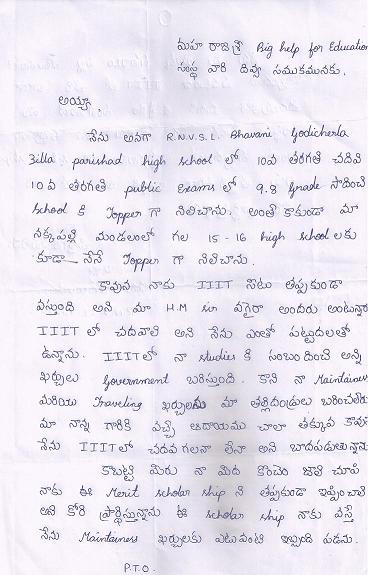 మహా రాజశ్రీ Big help for Education
సంస్థ వారి దివ్య సముకమునకు.
అయ్యా,
నేను అనగా R.N.V.S.L. Bhavani Godicherla
Zilla parishad high school లో 10వ తరగతి చదివి
10వ తరగతి public Exams లో 9.8 Grade సాదించి
School కి Topper గా నిలిచాను. అంతే కాకుండా మా
నక్కపల్లి మండలంలో గల 15-16 high school లకు
కూడా నేనే Topper గా నిలిచాను.
కావున నాకు IIIT సీటు తప్పకుండా
వస్తుంది అని మా H.M sir వగైరా అందరు అంటున్నారు
IIIT లో చదవాలి అని నేను ఎంతో పట్టుదలతో
ఉన్నాను. IIIT లో నా studies కి సంబందించి అన్ని
ఖర్చులు Government బరిస్తుంది. కాని నా Maintainess
మరియు Traveling ఖర్చులను మా తల్లిదండ్రులు బరించలేరు
మా నాన్న గారికి వచ్చే ఆదాయము చాలా తక్కువ కావున
నేను IIIT లో చదవగలనా లేనా అని బాదపడుతున్నాను
కాబట్టి మీరు నా మీద కొంచెం జాలి చూపి
నాకు ఈ Merit scholar ship ని తప్పకుండా ఇప్పించాలి
అని కోరి ప్రార్థిస్తున్నాను ఈ scholar ship నాకు వస్తే
నేను Maintainess ఖర్చులకు ఎటువంటి ఇబ్బంది పడను.
P.T.O.